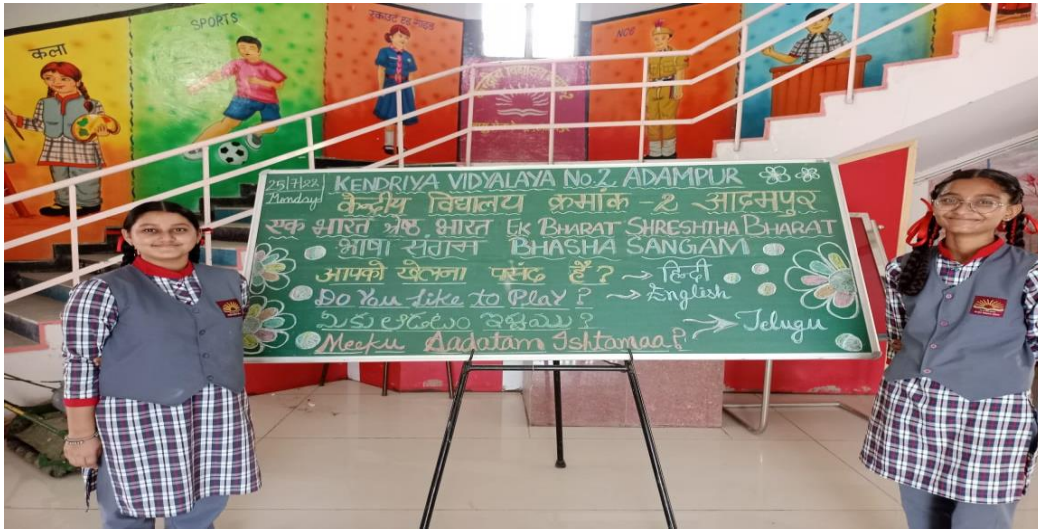 कला
SPORTS
स्काउट एंड गाइड
NCC
25/7/22
Monday
KENDRIYA VIDYALAYA No.2 ADAMPUR
केन्द्रीय विद्यालय क्रमांक -2 आदमपुर
एक भारत श्रेष्ठ भारत EK BHARAT SHRESHTHA BHARAT
भाषा संगम BHASHA SANGAM
आपको खेलना पसंद हैं? → हिन्दी
Do You like to Play? → English
మీకు ఆడటం ఇష్టమా?
Meeku Aadatam Ishtamaa? → Telugu